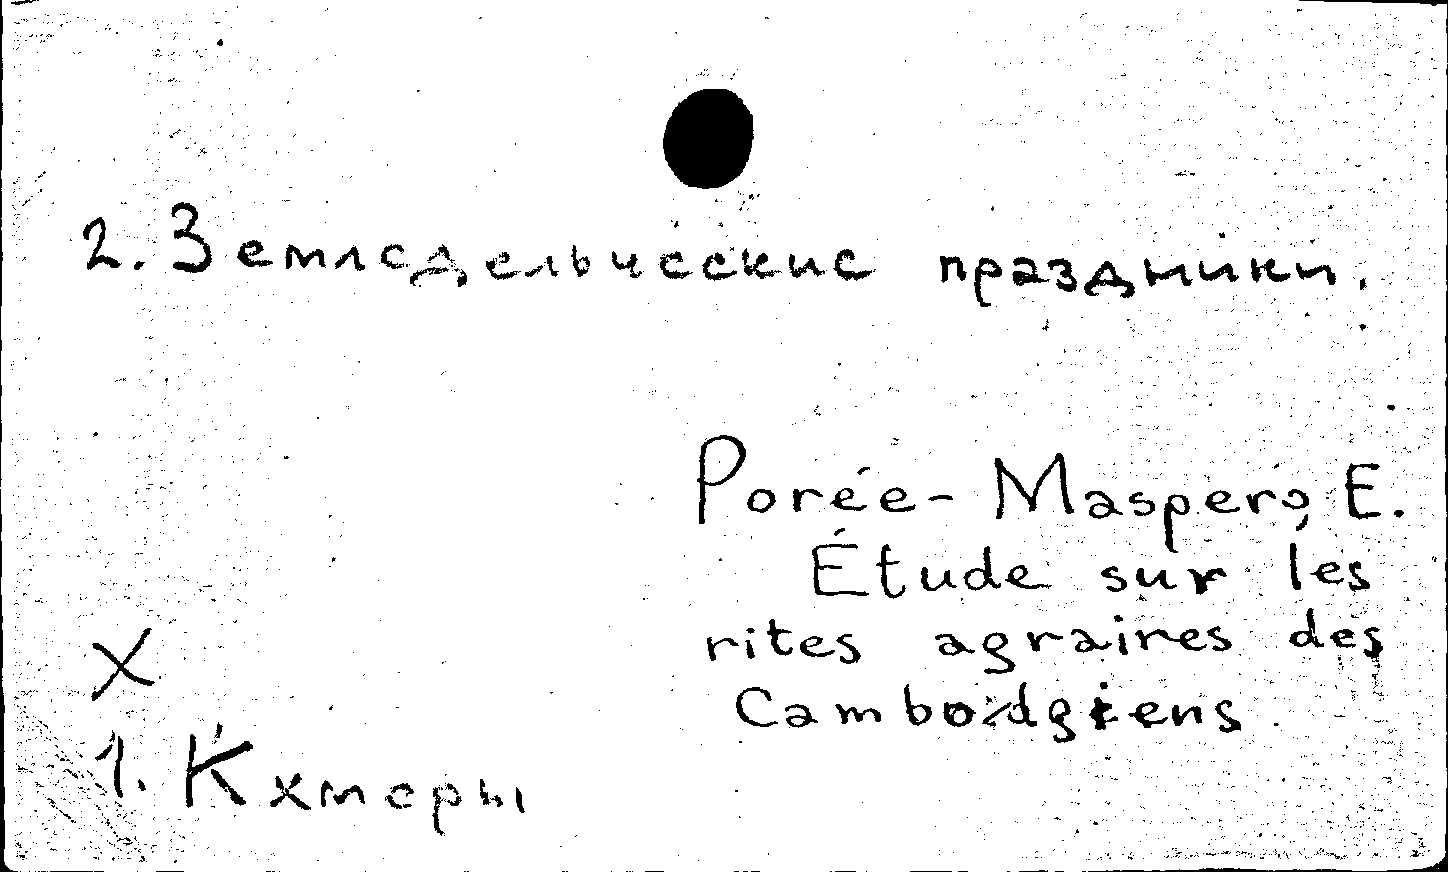 2. Земледельческие праздники.
Porée-Maspero, E.
Étude sur les
rites agraires des
Cambodgiens
X
1. Кхмеры